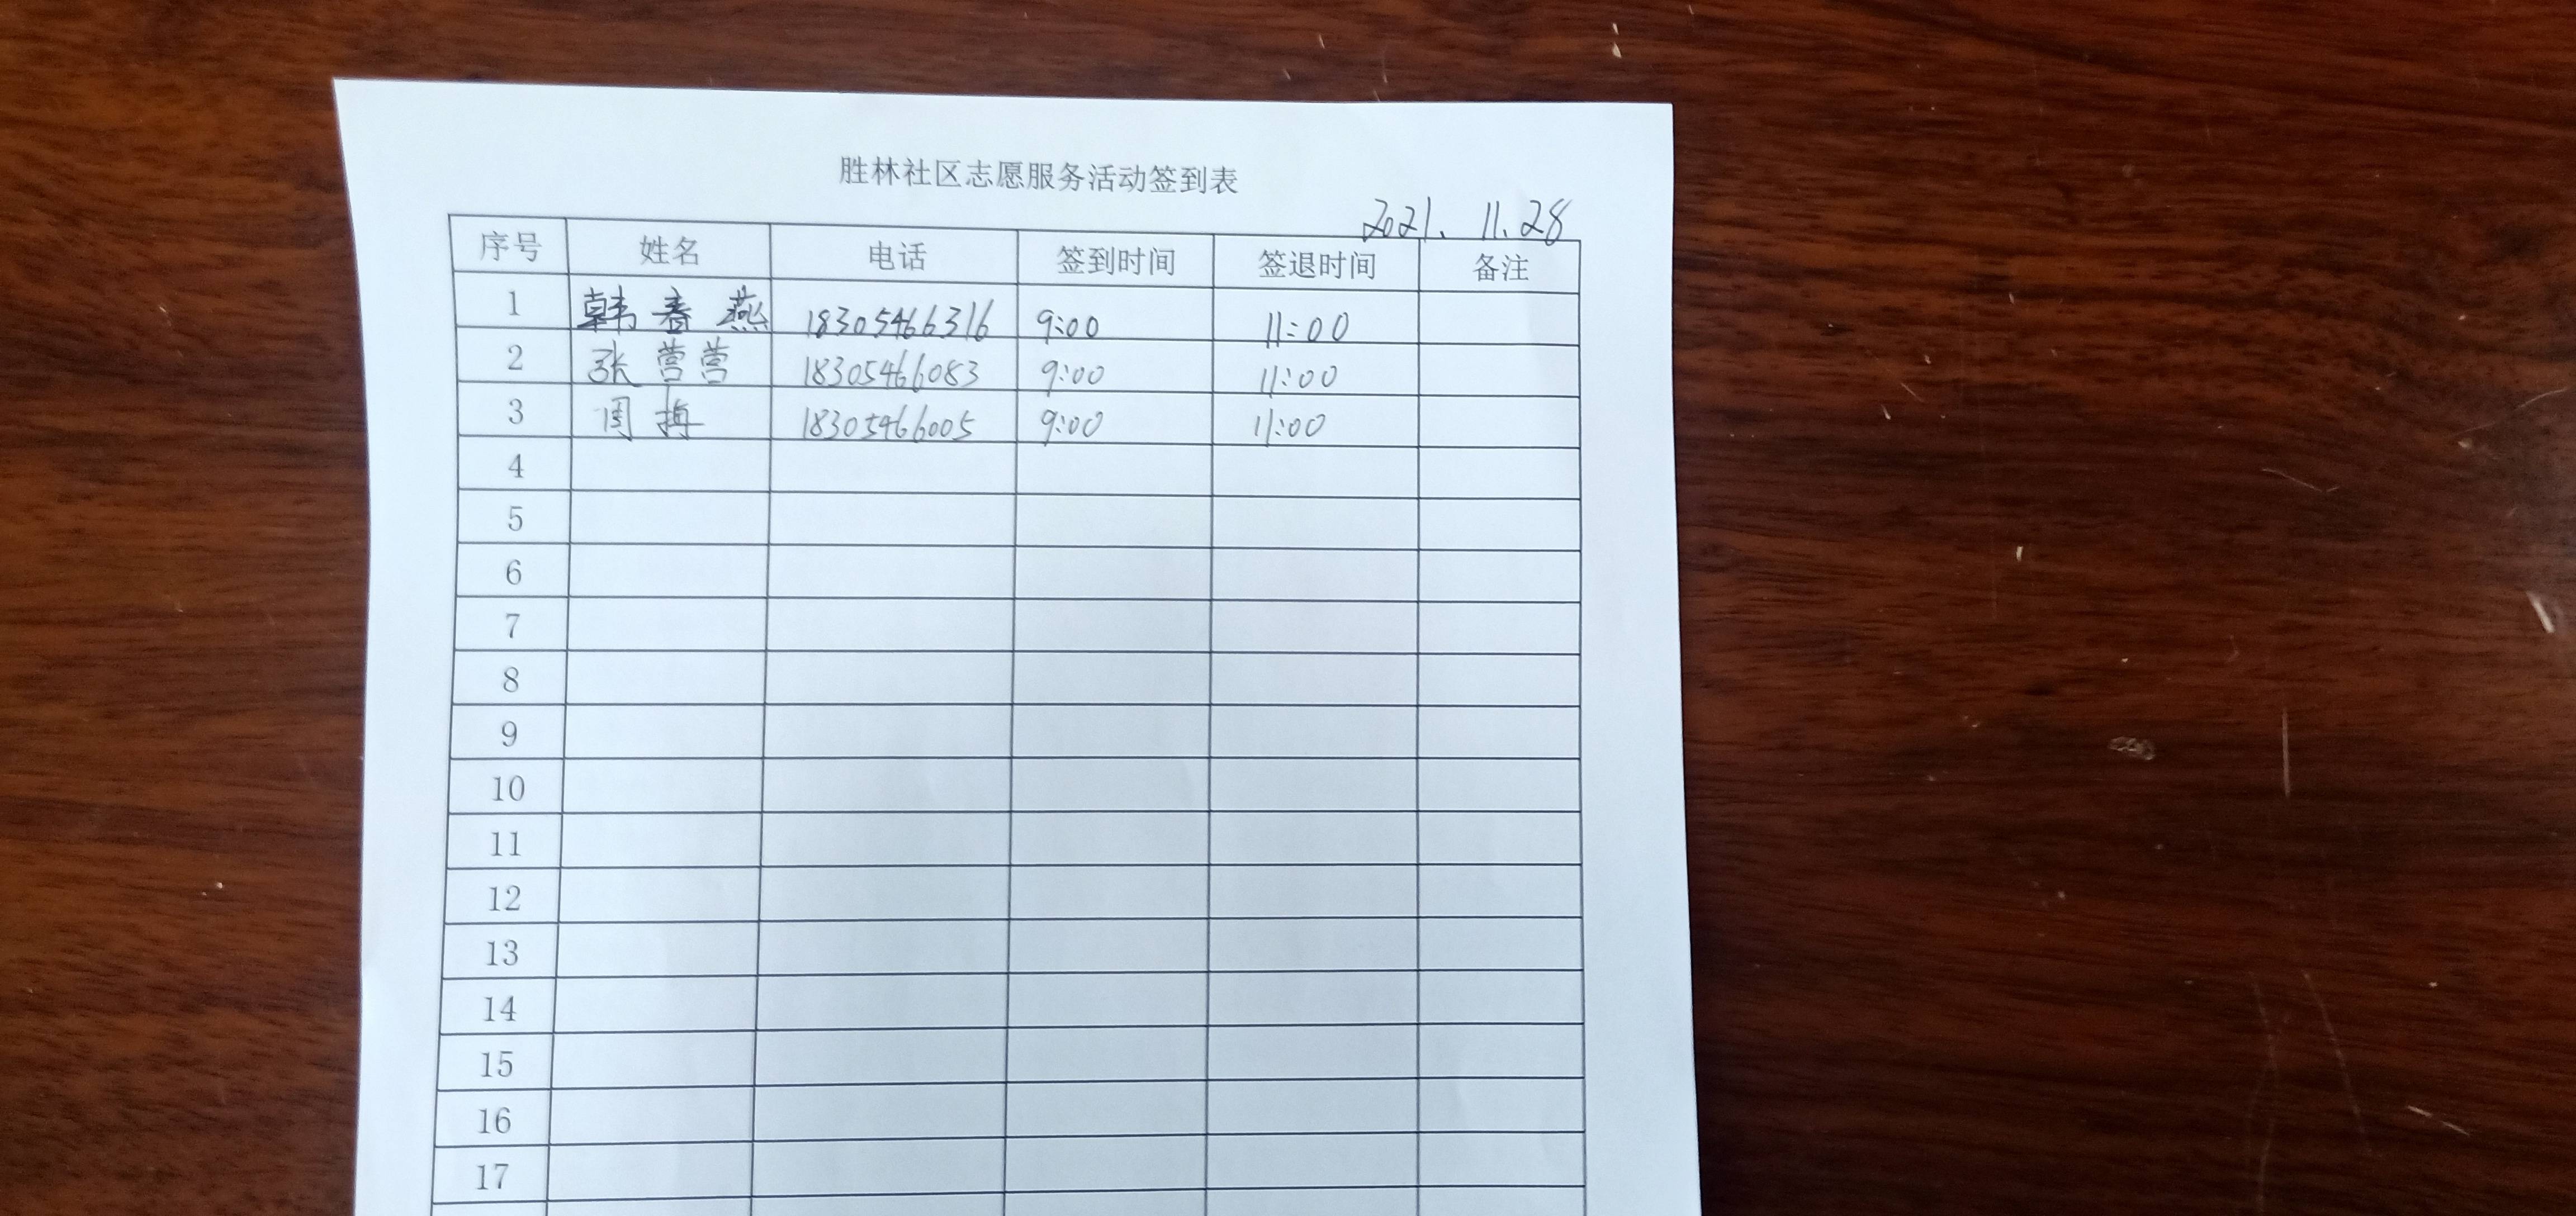 胜林社区志愿服务活动签到表
2021. 11. 28
序号 姓名 电话 签到时间 签退时间 备注
1 韩春燕 18305466316 9:00 11:00
2 张营营 18305466083 9:00 11:00
3 周 18305466005 9:00 11:00
4
5
6
7
8
9
10
11
12
13
14
15
16
17